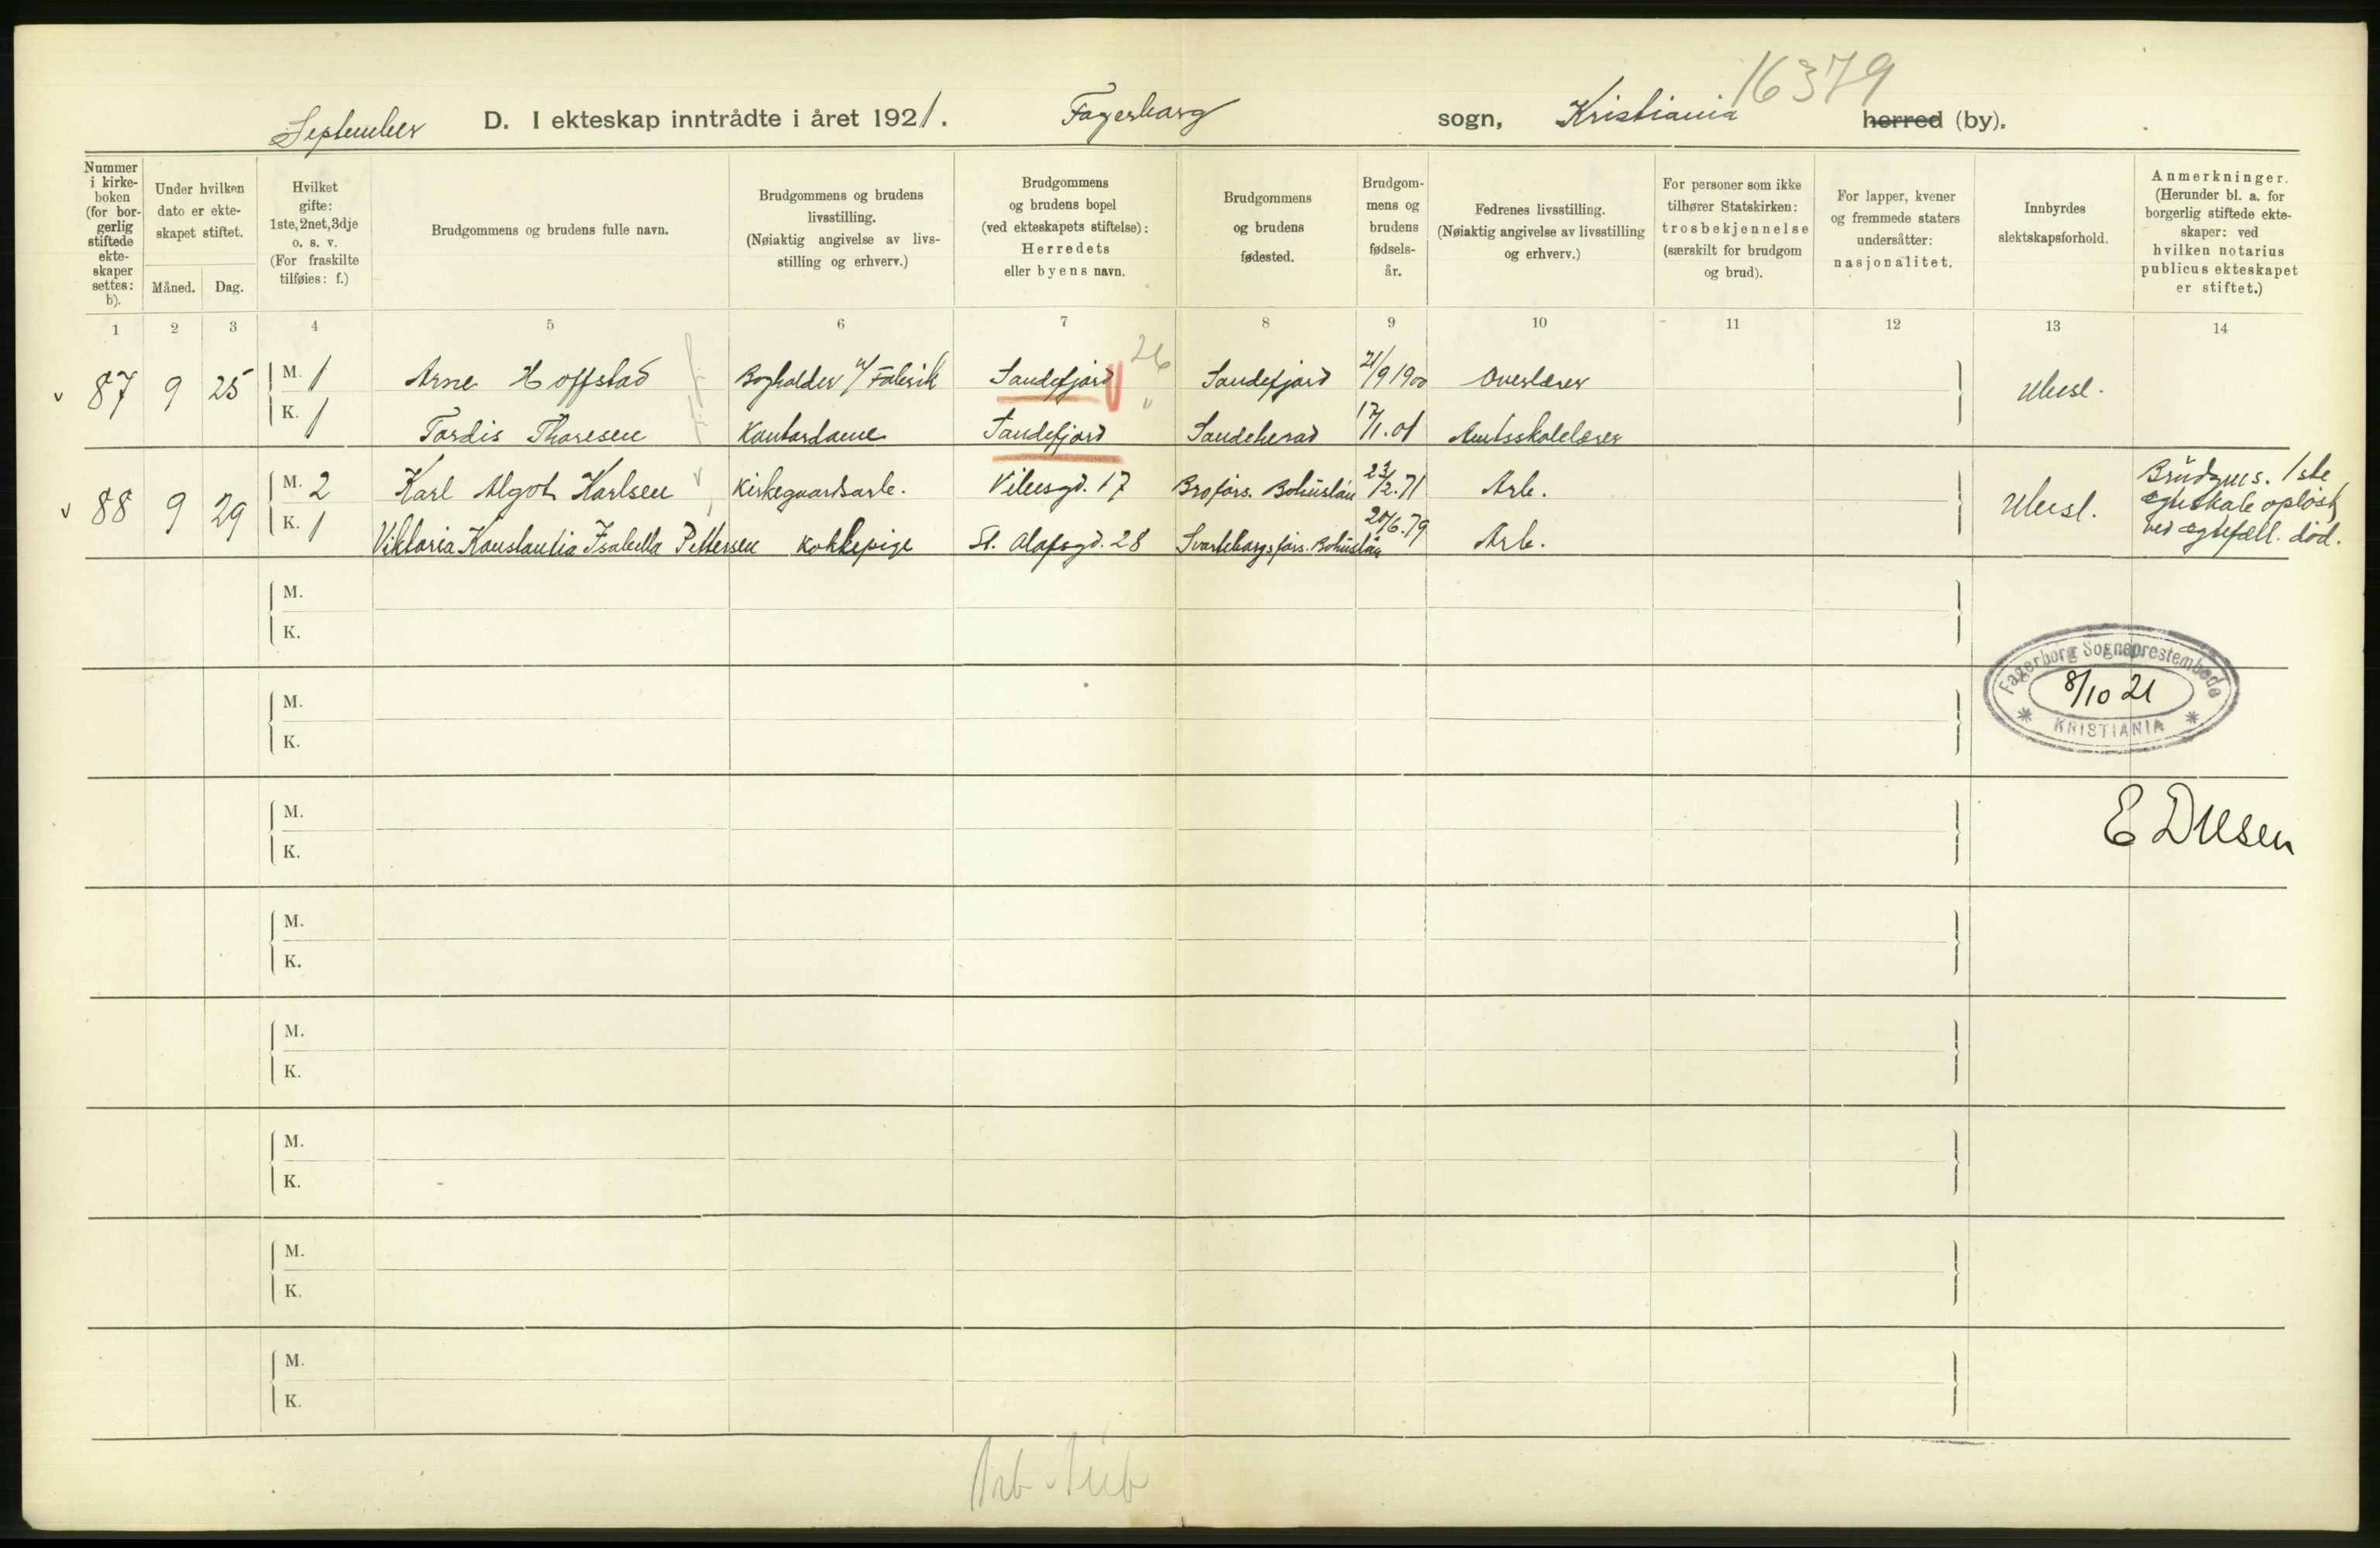 16379
September D. I ekteskap inntrådte i året 1921. Fagerborg sogn, Kristiania herred (by).
Nummer i kirke-boken (for bor-gerlig stiftede ekte-skaper settes: b).
Under hvilken dato er ekte-skapet stiftet.
Måned. Dag.
Hvilket gifte: 1ste, 2net, 3dje o. s. v. (For fraskilte tilføies: f.)
Brudgommens og brudens fulle navn.
Brudgommens og brudens livsstilling. (Nøiaktig angivelse av livs-stilling og erhverv.)
Brudgommens og brudens bopel (ved ekteskapets stiftelse): Herredets eller byens navn.
Brudgommens og brudens fødested.
Brudgom-mens og brudens fødsels-år.
Fedrenes livsstilling. (Nøiaktig angivelse av livsstilling og erhverv.)
For personer som ikke tilhører Statskirken: trosbekjennelse (særskilt for brudgom og brud).
For lapper, kvener og fremmede staters undersåtter: nasjonalitet.
Innbyrdes slektskapsforhold.
Anmerkninger. (Herunder bl. a. for borgerlig stiftede ekte-skaper: ved hvilken notarius publicus ekteskapet er stiftet.)
1 2 3 4 5 6 7 8 9 10 11 12 13 14
26
v 87 9 25 M. 1 Arne Hoffstad Bogholder v/ Fabrik Sandefjord Sandefjord 21/9 1900 Overlærer Ubesl.
K. 1 Tordis Thoresen Kontordame Sandefjord " Sandeherad 17/1.01 Amtsskolelærer
v 88 9 29 M. 2 Karl Algot Karlsen Kirkegaardsarb. Vibesgd. 17 Brofors. Bohuslän 23/2.71 Arb. Ubesl.
K. 1 Viktoria Konstantia Isabella Pettersen Kokkepige St. Olafsgd. 28 Svarteborgs förs. Bohuslän 20/6.79 Arb.
Brudgms. 1ste
egteskab opløst
ved egtefæll. død.
M.
K.
Fagerborg Sogneprestembede
8/10 21
KRISTIANIA
M.
K.
M.
K.
E Dresen
M.
K.
M.
K.
M.
K.
M.
K.
M.
K.